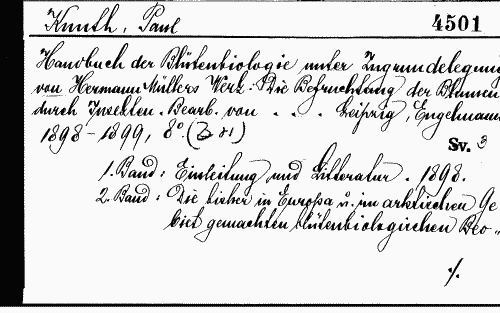 Knuth, Paul 4501
Handbuch der Blütenbiologie unter Zugrundelegung
von Hermann Müllers Werk: Die Befruchtung der Blumen
durch Insekten. Bearb. von . . . Leipzig, Engelmann
1898-1899, 8°.
Sv. 3
1. Band: Einleitung und Litteratur. 1898.
2. Band: Die bisher in Europa u. im arktischen Ge
biet gemachten blütenbiologischen Beo-
./.